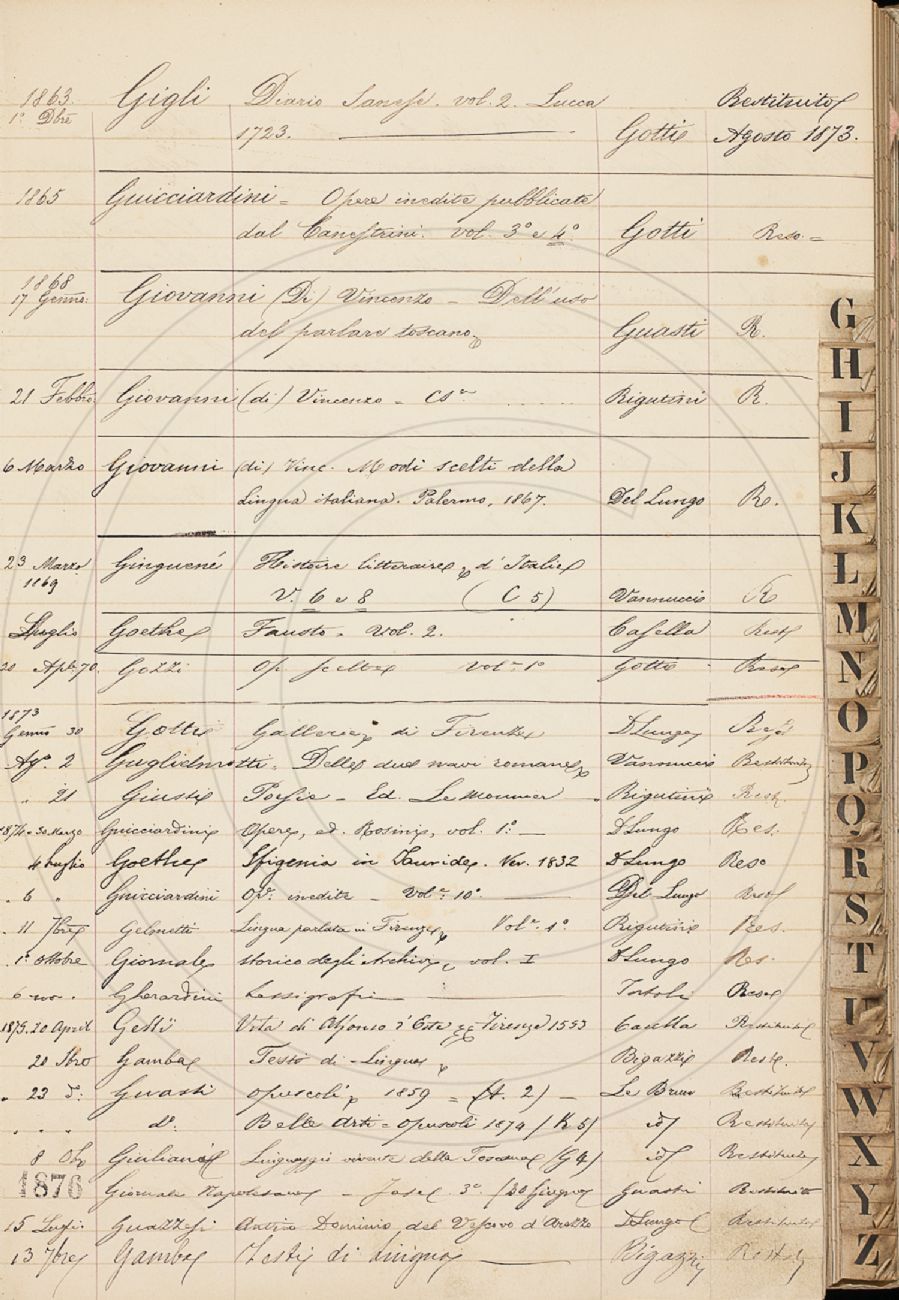 1863. Gigli Diario Sanese. vol. 2. Lucca Restituito
1º Dbre 1723. Gotti Agosto 1873.
1865 Guicciardini = Opere inedite pubblicate
dal Canestrini. vol. 3º e 4º. Gotti Reso. =
1868
17 Genn: Giovanni (Di) Vincenzo - Dell'uso
del parlare toscano. Guasti R.
21 Febbro. Giovanni (di) Vincenzo - Guasti Rigutini R.
6 Marzo Giovanni (di) Vinc. Modi scelti della
Lingua italiana. Palermo, 1867. Del Lungo R.
23 Marzo Ginguené Histoire litteraire d'Italie
1869 V. 6 e 8 (C 5) Vannucci R
Luglio Goethe Fausto. Vol. 2. Casella Rest
20 Aple. 70. Gozzi Op. scelte vol. 1º Gotti Reso
1873
Genn 30 Gotti Gallerie di Firenze D Lungo
Ago. 2 Guglielmotti. Delle due navi romane Vannucci Restituito
" 21 Giusti Poesie - Ed. Le Monnier Rigutini Rest.
1874. 30 Marzo Guicciardini Opere, ed. Rosini, vol. 1º. D Lungo Res.
4 Luglio Goethe Ifigenia in Tauride. Ver. 1832 D Lungo Reso
" 6 " Guicciardini Op. inedite - Vol. 10º Del Lungo Rest
" 11 7bre Gelmetti Lingua parlata in Firenze Vol. 1º Rigutini Res.
" 1º Ottobre Giornale storico degli Archivi, vol. I D Lungo Res.
6 nov. Gherardini Lessigrafia Tortoli Reso
1875. 20 April Vita di Alfonso d'Este Firenze 1553 Casella Restituito
20 Gamba Testo di Lingua Bigazzi Rest.
" 23 Guasti Opuscoli 1859 = (A. 2) Le Brun Restituito
" " " dº. Belle Arti = Opuscoli 1874 (K 5) id Restituito
8 Giuliani Linguaggio vivente della Toscana (G 4) id Restituito
1876 Giornale Napoletano - Fasc. 3º (20 Giugno) Guasti Restituito
15 Lugl. Guazzesi Antico Dominio del Vescovo d'Arezzo D Lungo Restituito
13 7bre Gamba Testi di Lingua Bigazzi
G
H
I
J
K
L
M
N
O
P
Q
R
S
T
U
V
W
X
Y
Z